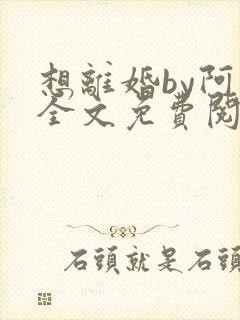 想離婚by阿
全文免費閱
石頭就是石頭